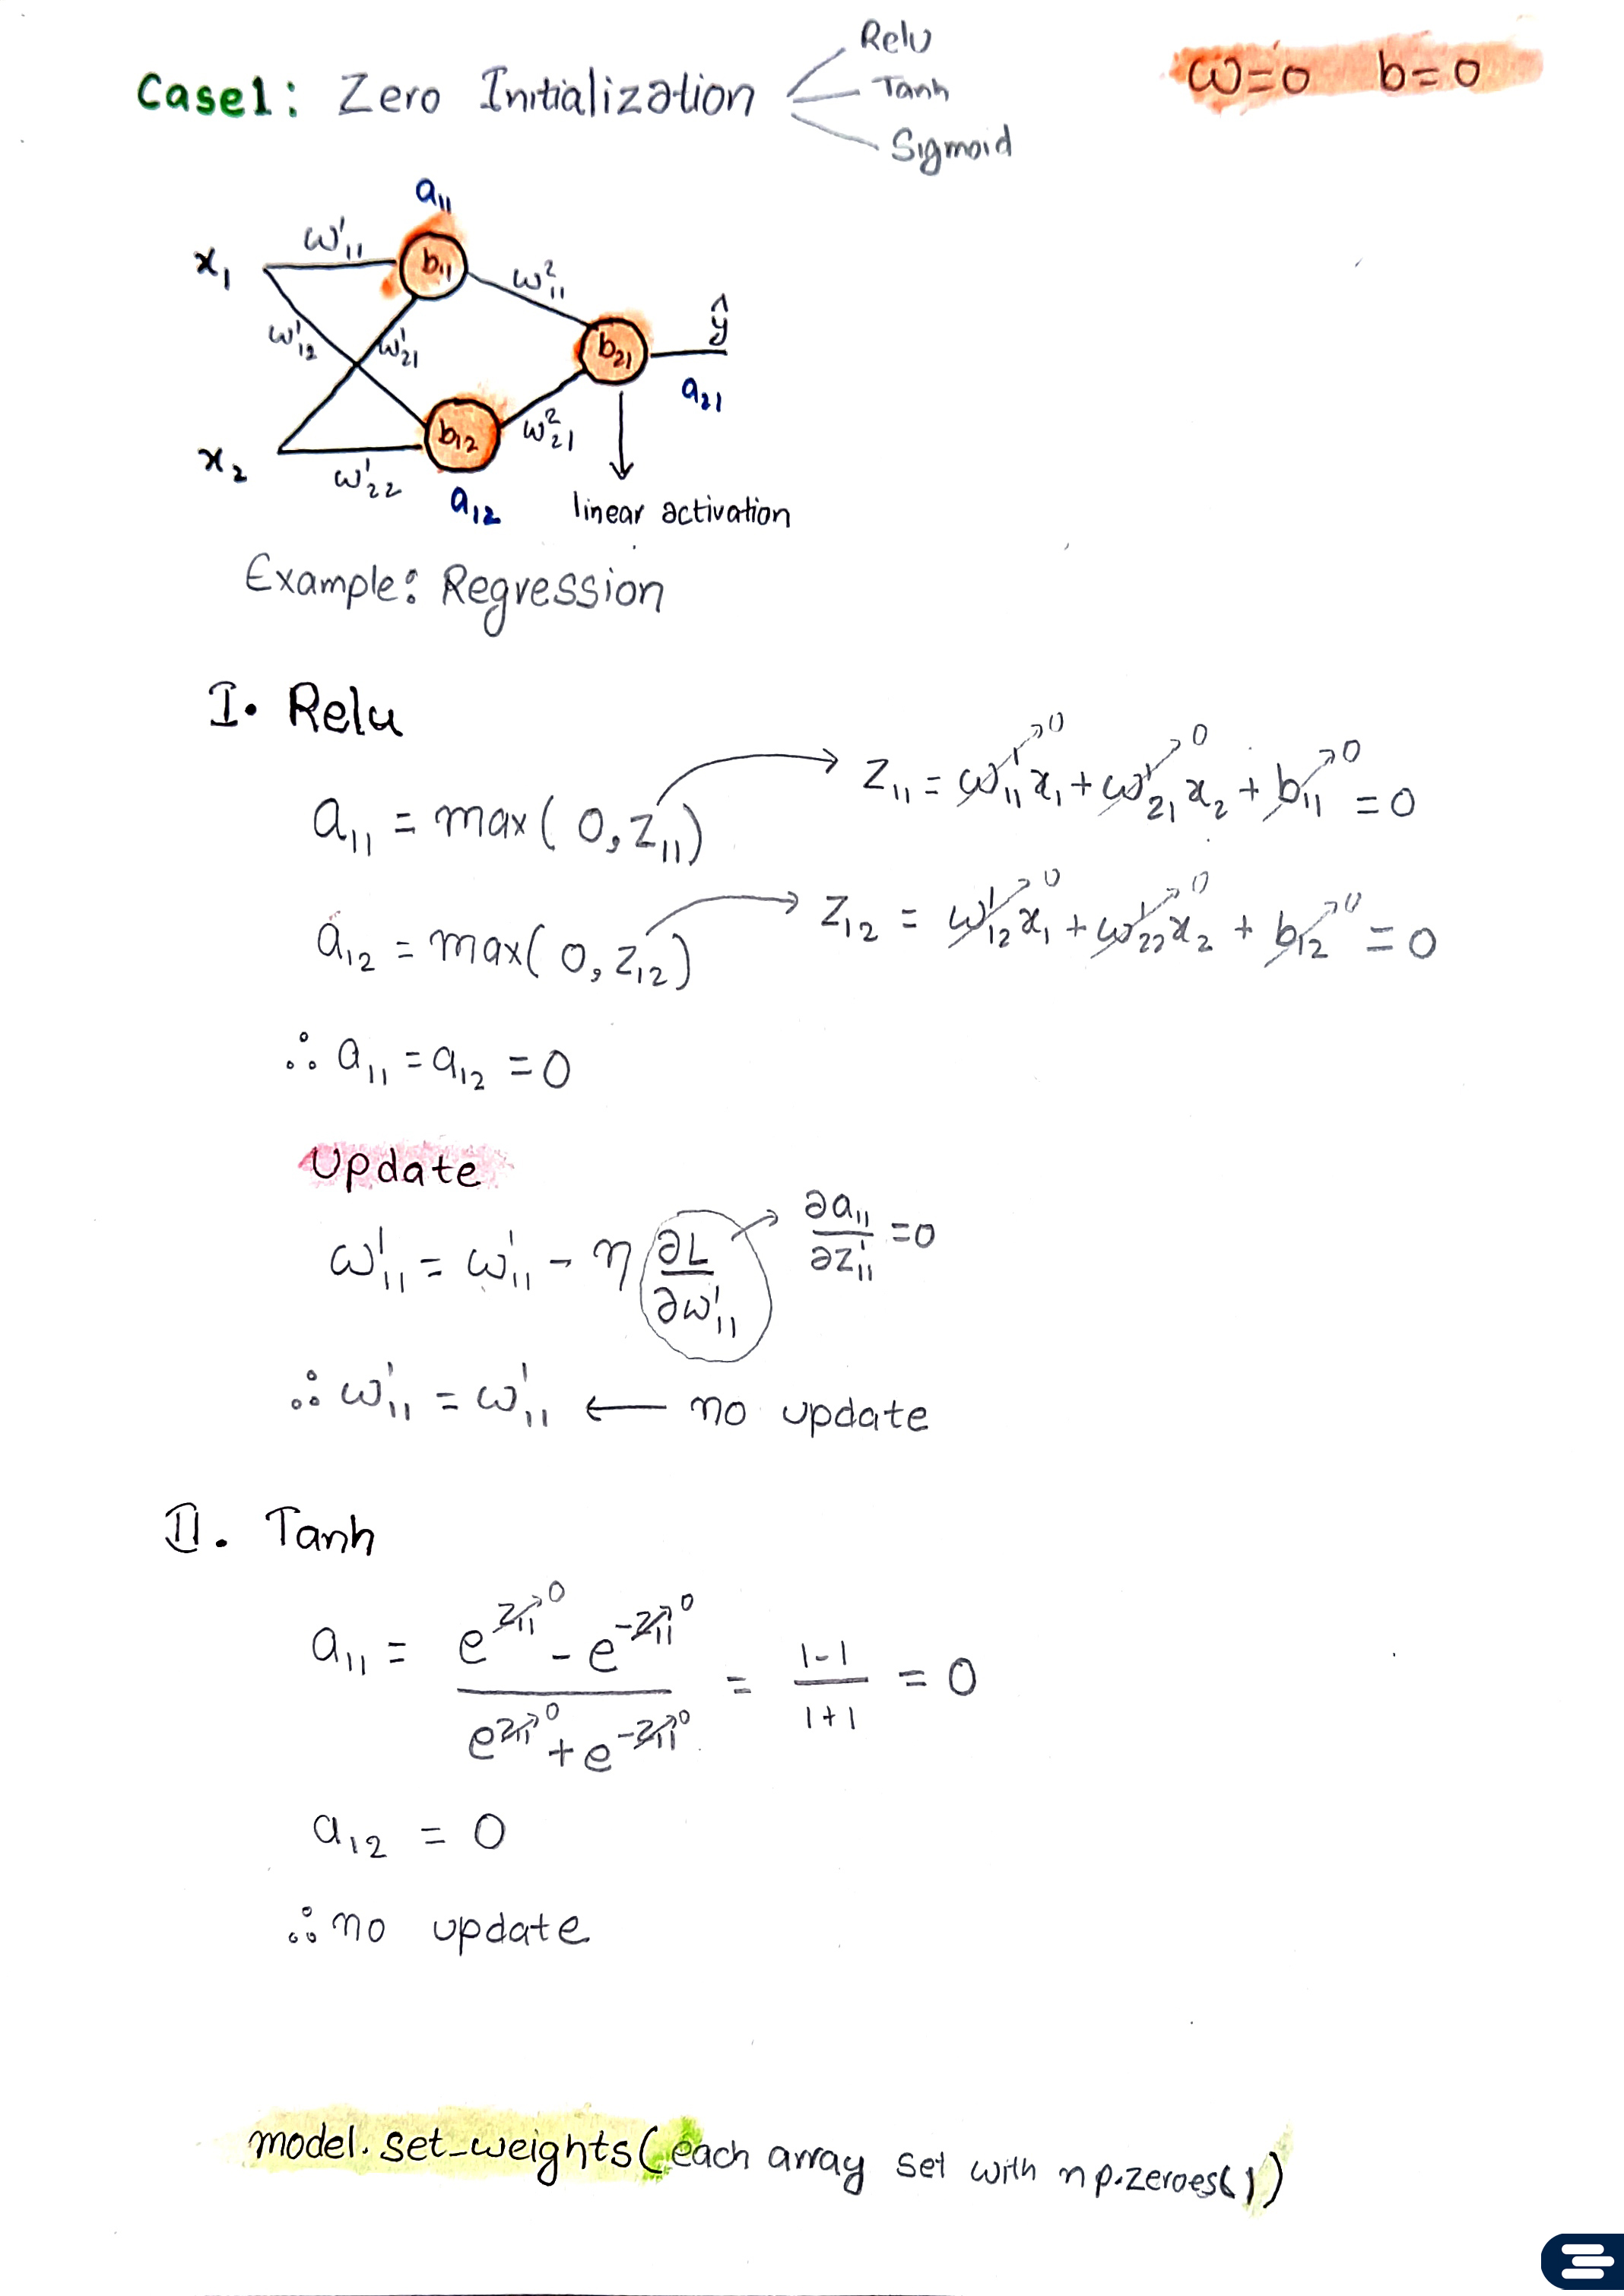 Case1: Zero Initialization
Relu
Tanh
Sigmoid
ω=0 b=0
a₁₁
x₁ ω¹₁₁ b₁₁ ω²₁₁
ω¹₁₂ ω¹₂₁ b₂₁ ŷ
a₂₁
x₂ ω¹₂₂ b₁₂ ω²₂₁
a₁₂ linear activation
Example: Regression
I. Relu
a₁₁ = max(0, z₁₁) → z₁₁ = ω¹₁₁x₁ + ω¹₂₁x₂ + b₁₁ = 0
→0 →0 →0
a₁₂ = max(0, z₁₂) → z₁₂ = ω¹₁₂x₁ + ω¹₂₂x₂ + b₁₂ = 0
→0 →0 →0
∴ a₁₁ = a₁₂ = 0
Update
ω¹₁₁ = ω¹₁₁ - η ∂L/∂ω¹₁₁ → ∂a₁₁/∂z¹₁₁ = 0
∴ ω¹₁₁ = ω¹₁₁ ← no update
II. Tanh
a₁₁ = (e^z₁₁→0 - e^-z₁₁→0)/(e^z₁₁→0 + e^-z₁₁→0) = (1-1)/(1+1) = 0
a₁₂ = 0
∴ no update
model.set_weights(each array set with np.zeroes())